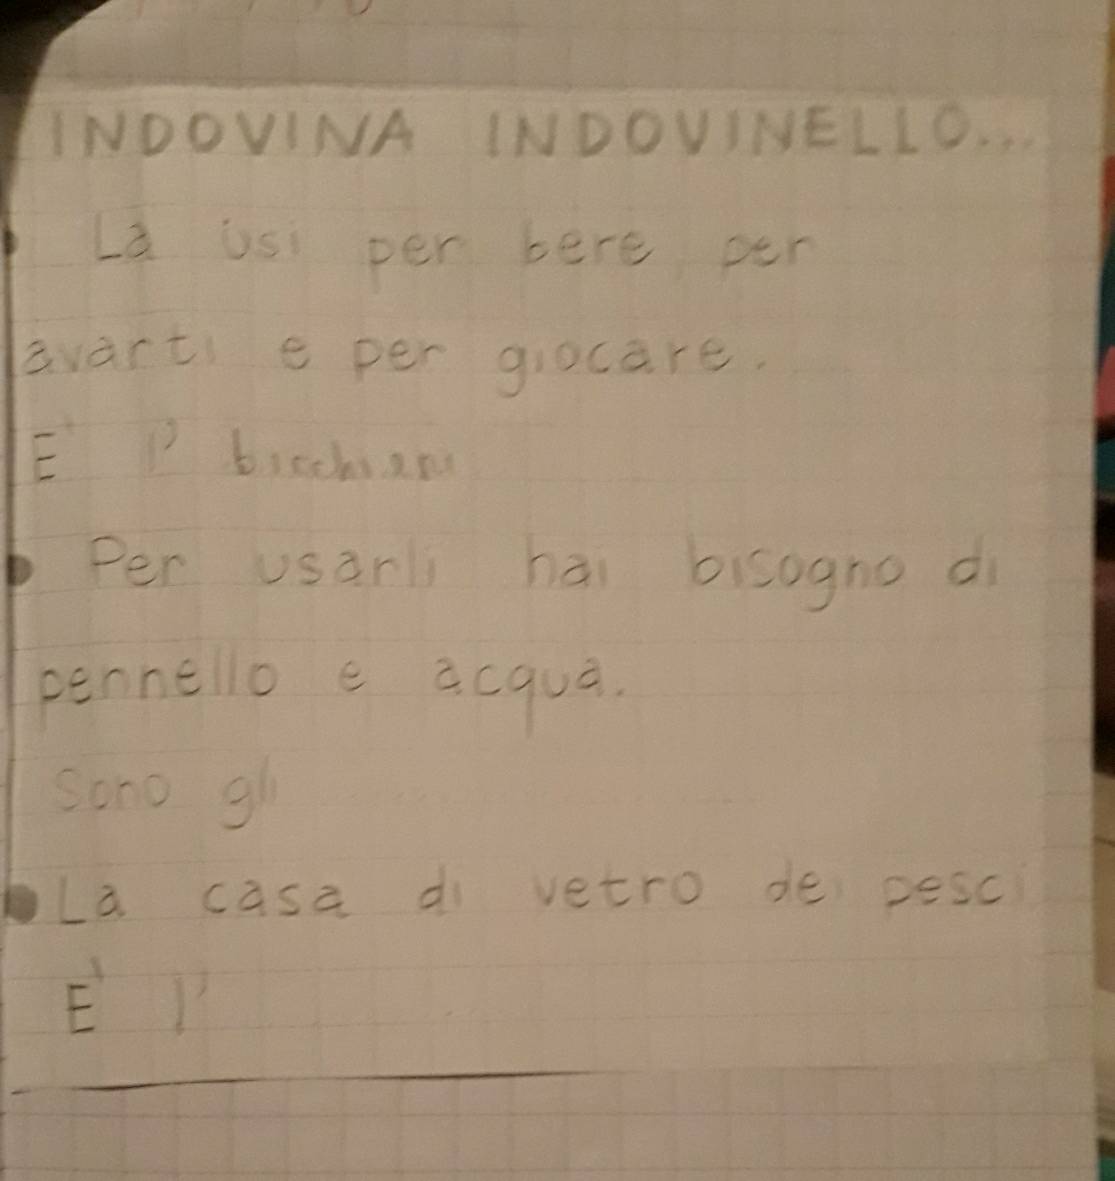 INDOVINA INDOVINELLO...
La usi per bere, per
avarti e per giocare.
E' l'
Per usarli hai bisogno di
pennello e acqua.
Sono gli
La casa di vetro dei pesci
E' l'